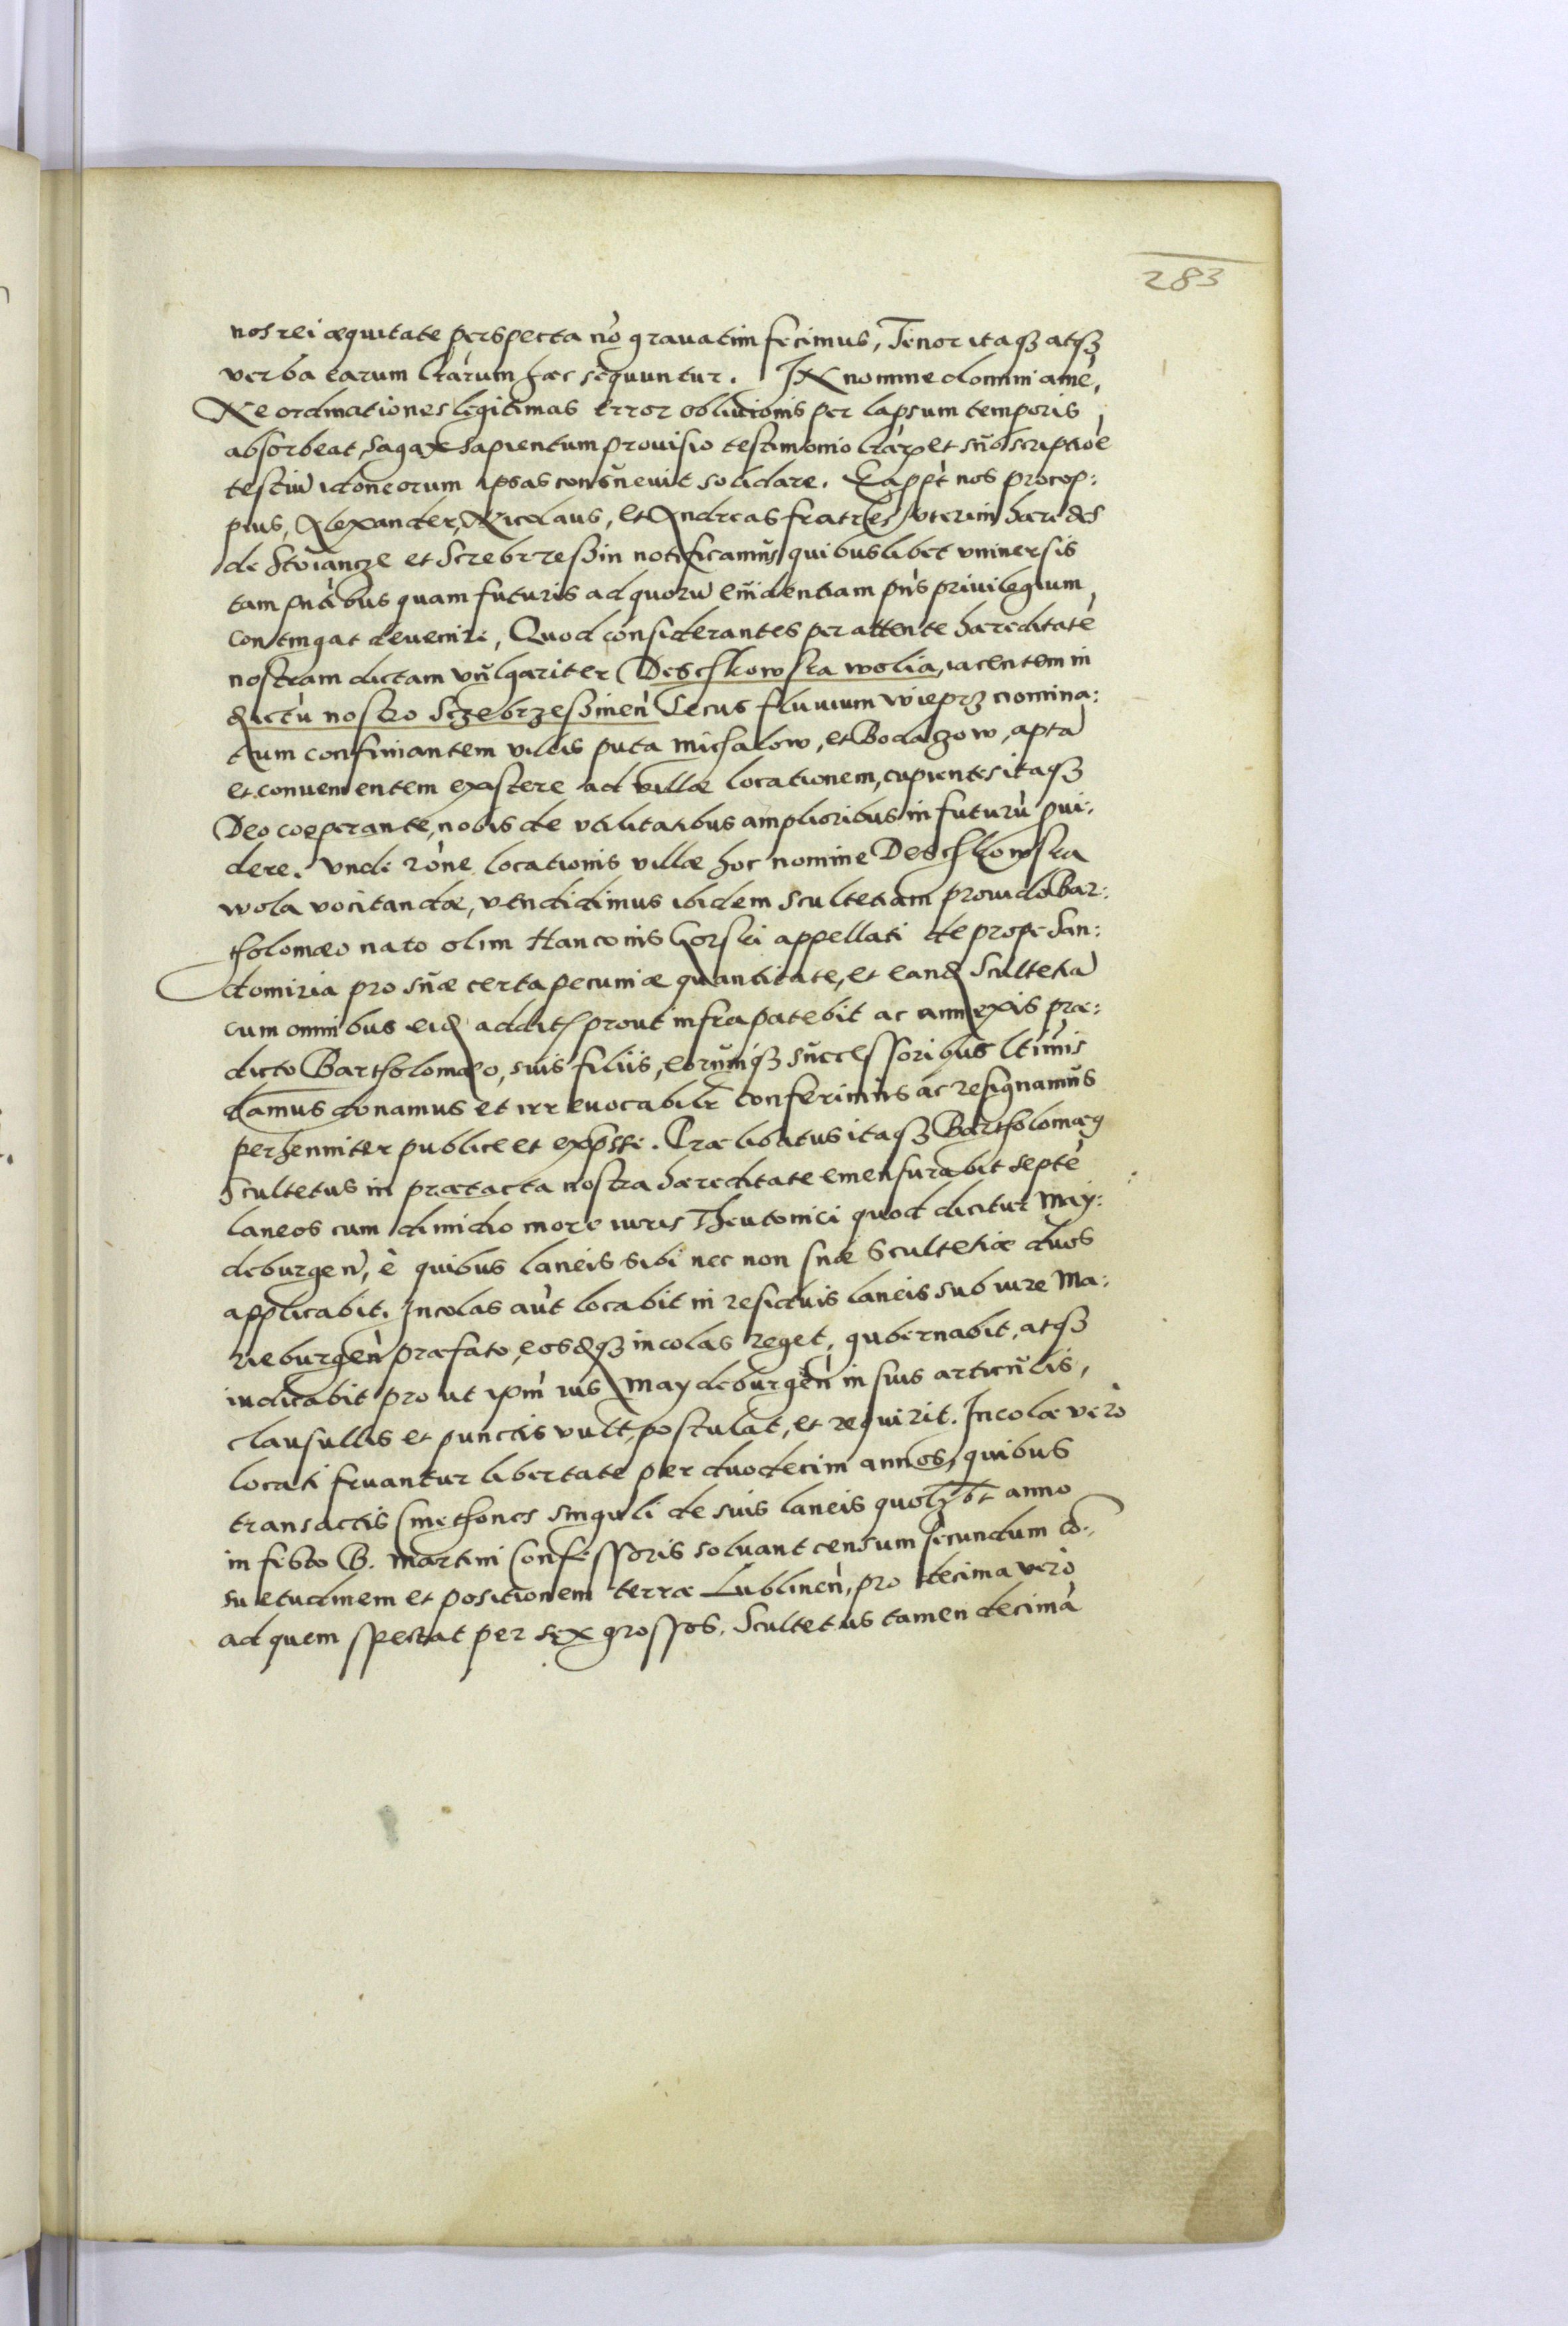 283
nos rei æquitate perspecta nõ grauatim fecimus, Tenor itaqȝ atqȝ
verba earum lrarum hæc sequuntur. IN nomine domini amē,
Ne ordinationes legitimas error obliuionis per lapsum temporis
absorbeat, sagax sapientum prouisio testimonio lrarꝫ et sŭbscriptiōe
testiū idoneorum ipsas consŭeuit solidare. Eappt̀ nos procop:
pius, Alexander, Nicolaus, et Andreas fratres vterini hæredes
de Stoiancze et Screbrzeszin notificamŭs quibuslibet vniuersis
tam pntibus quam futuris ad quorū eŭidentiam pn̄s priuilegium
contingat deuenire, Quod considerantes per attente hæreditatē
nostram dictam vŭlgariter Deschkowska wolia, iacentem in
dictū nostro Sczebrzeszinen̄ Secus fluuium wieprz nomina:
tum confiniantem villis puta Michalow, et Bodaczow, aptā
et conuenientem existere ad villæ locationem, cupientes itaqȝ
Deo coeperante, nobis de vtilitatibus amplioribus in futurū pui:
dere. vnde rōne locationis villæ hoc nomine Deschkowska
wola vocitandæ, vendidimus ibidem scultetiam prouido Bar:
tholomæo nato olim Hanconis Gorski appellati de prope San:
domiria pro sŭæ certa pecuniæ quantitate, et eand Scultetiā
cum omnibus eid addit prout infra patebit ac annexis præ:
dicto Bartholomæo, suis filiis, eorŭmqȝ sŭccessoribŭs ltimis
damus donamus et irreuocabilr conferimŭs ac resignamŭs
perhenniter publice et expsse. Prælibatus itaqȝ Bartholomæꝯ
Scultetus in prætacta nostra hæreditate emensurabit septē
laneos cum dimidio more iuris Theutonici quod dicitur May:
deburgen̄, è quibus laneis sibi nec non suæ Scultetiæ duos
applicabit. Incolas aūt locabit in residuis laneis sub iure Ma:
ideburgen̄ præfato, eosdqȝ incolas reget, gubernabit, atqȝ
iudicabit pro ut ipm̄ ius Maydeburgen̄ in suis articŭlis,
clausullis et punctis vult, postulat, et requirit. Incolæ verò
locati fruantur libertate per duodecim annos, quibus
transactis Cmethones singuli de suis laneis quolȝbt anno
in festo B. Martini Confessoris soluant censum secundum cō:
suetudinem et positionem terræ Lublinen̄, pro decima verò
ad quem spectat per sex grossos. Scultetus tamen decimā